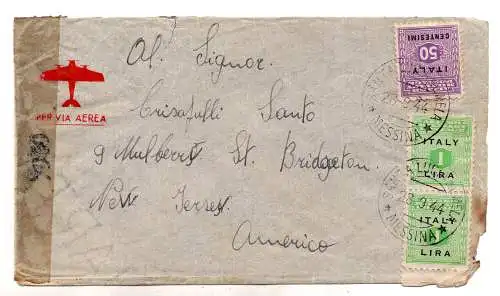 Al. Signor.
Crisafulli Santo
9 Mulberry St. Bridgeton.
New Jersey
America
PER VIA AEREA
50
CENTESIMI
ITALY
ITALY
1
LIRA
ITALY
LIRA
MESSINA
9 44
28 9 44
MESSINA